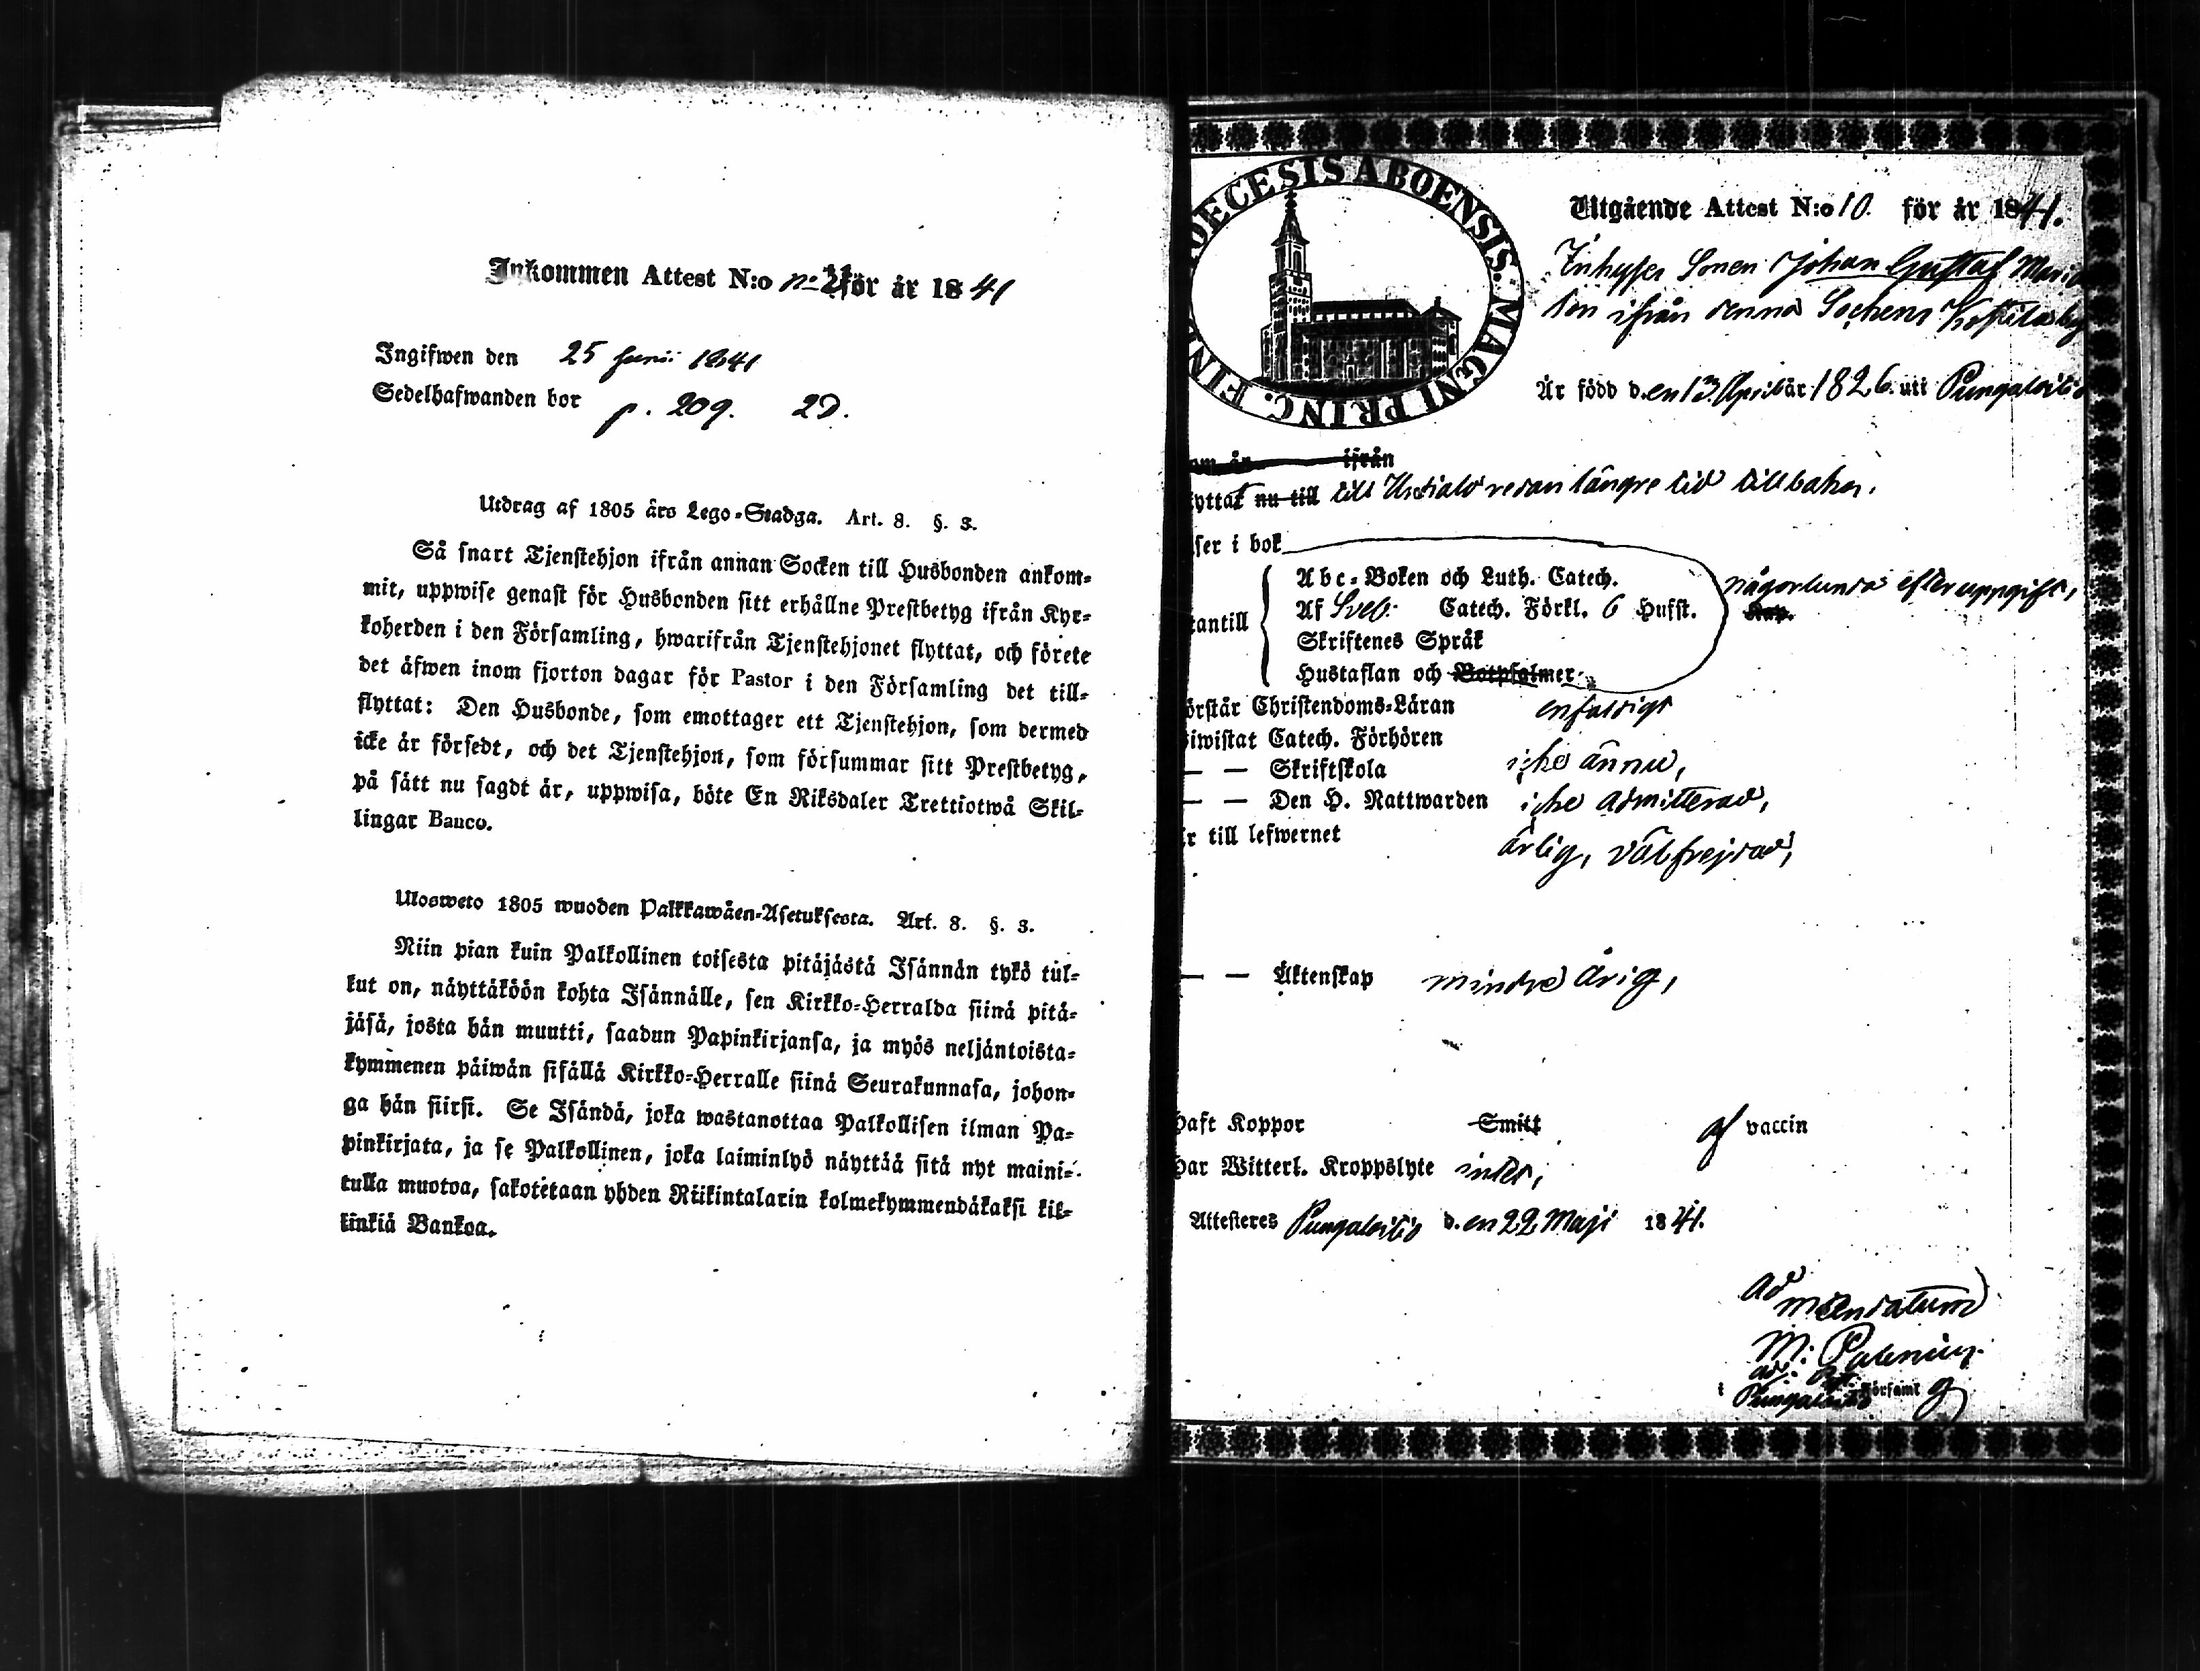 Inkommen Attest N:o för år 1841
Ingifwen den 25 Junii 1841
Sedelhafwanden bor p. 209. 2D.
Utdrag af 1805 års Lego-Stadga. Art. 8. §. 3.
Så snart Tjenstehjon ifrån annan Socken till Husbonden ankom-
mit, uppwise genast för Husbonden sitt erhållne Prestbetyg ifrån Kyr-
koherden i den Församling, hwarifrån Tjenstehjonet flyttat, och förete
det äfwen inom fjorton dagar för Pastor i den Församling det till-
flyttat: Den Husbonde, som emottager ett Tjenstehjon, som dermed
icke är försedt, och det Tjenstehjon, som försummar sitt Prestbetyg,
på sätt nu sagdt är, uppwisa, böte En Riksdaler Trettiotwå Skil-
lingar Banco.
Ulosweto 1805 wuoden Palkkawäen-Asetuksesta. Art. 8. §. 3.
Niin pian kuin Palkollinen toisesta pitäjästä Isännän tykö tul-
kut on, näyttäköön kohta Isännälle, sen Kirkko-Herralda siinä pitä-
jäsä, josta hän muutti, saadun Papinkirjansa, ja myös neljäntoista-
kymmenen päiwän sisällä Kirkko-Herralle siinä Seurakunnasa, johon-
ga hän siirsi. Se Isändä, joka wastanottaa Palkollisen ilman Pa-
pinkirjata, ja se Palkollinen, joka laiminlyö näyttää sitä nyt maini-
tulla muotoa, sakotetaan yhden Riikintalarin kolmekymmendäkaksi kil-
linkiä Bankoa.
OECESIS ABOENSIS. MAGNI PRINC. FIN
Utgående Attest N:o 10. för år 1841.
Inhyses Sonen Johan Gustaf
son ifrån denna Sockens
Är född den 13 April år 1826. uti Pungalaitio
om år ifrån
yttat nu till till redan längre tid tillbaka.
ser i bok
Abc-Boken och Luth. Catech. någorlunda efter uppgift,
tantill Af Sveb. Catech. Förkl. 6 Hufst.
Skriftenes Språk
Hustaflan och Botpsalmer
örstår Christendoms-Läran enfaldigt
iwistat Catech. Förhören
— — Skriftskola icke ännu,
— — Den H. Nattwarden icke admitterad,
r till lefwernet ärlig, välfrejdad,
— — Äktenskap minderårig,
haft Koppor Smitt af vaccin
har Witterl. Kroppslyte intet,
Attesteres Pungalaitio d. en 22 Maji 1841.
Ad
mandatum
M: Polenius.
i Pungalaitio Församl g